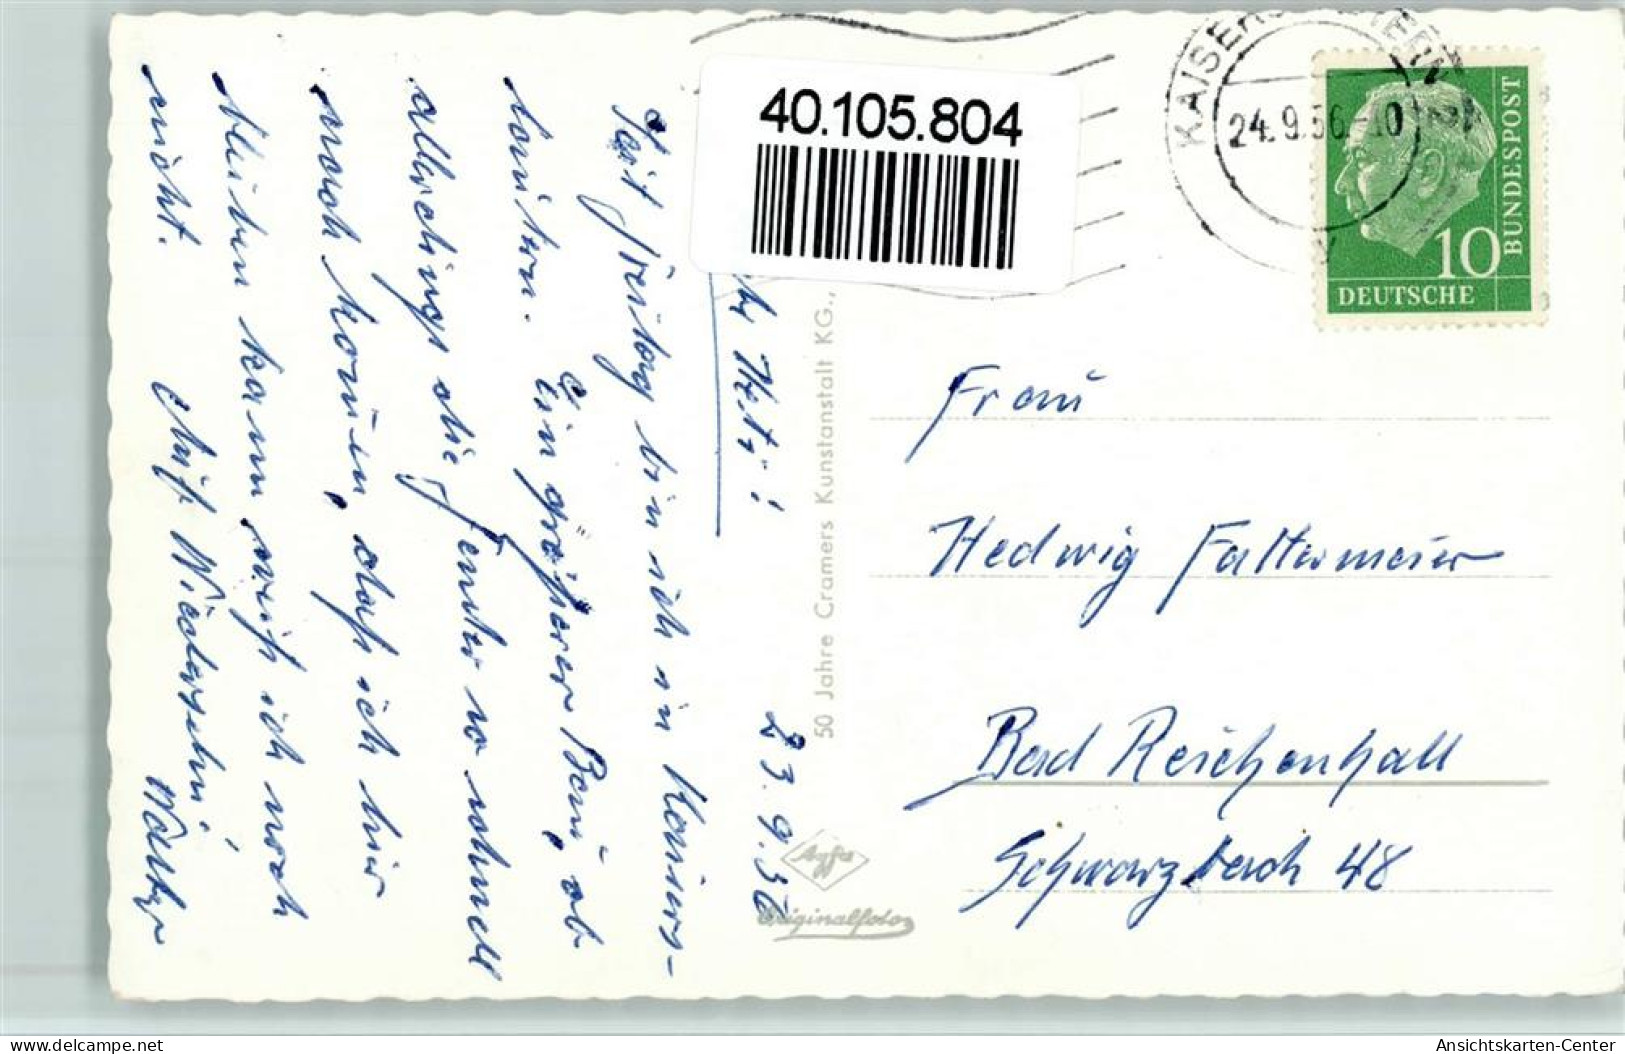 40.105.804
KAISERS
24.9.56.-10
BUNDESPOST
10
DEUTSCHE
23.9.56
Heti!
Seit Freitag bin ich in Kaisers-
lautern. Ein größerer Bau, ob
allerdings die Fenster so schnell
noch kommen, daß ich hier
bleiben kann weiß ich noch
nicht. Auf Wiedersehn!
Walter
50 Jahre Cramers Kunstanstalt KG.,
Agfa
Originalfoto
Frau
Hedwig Faltermeier
Bad Reichenhall
Schwarzbach 48
delcampe.net
Ansichtskarten-Center